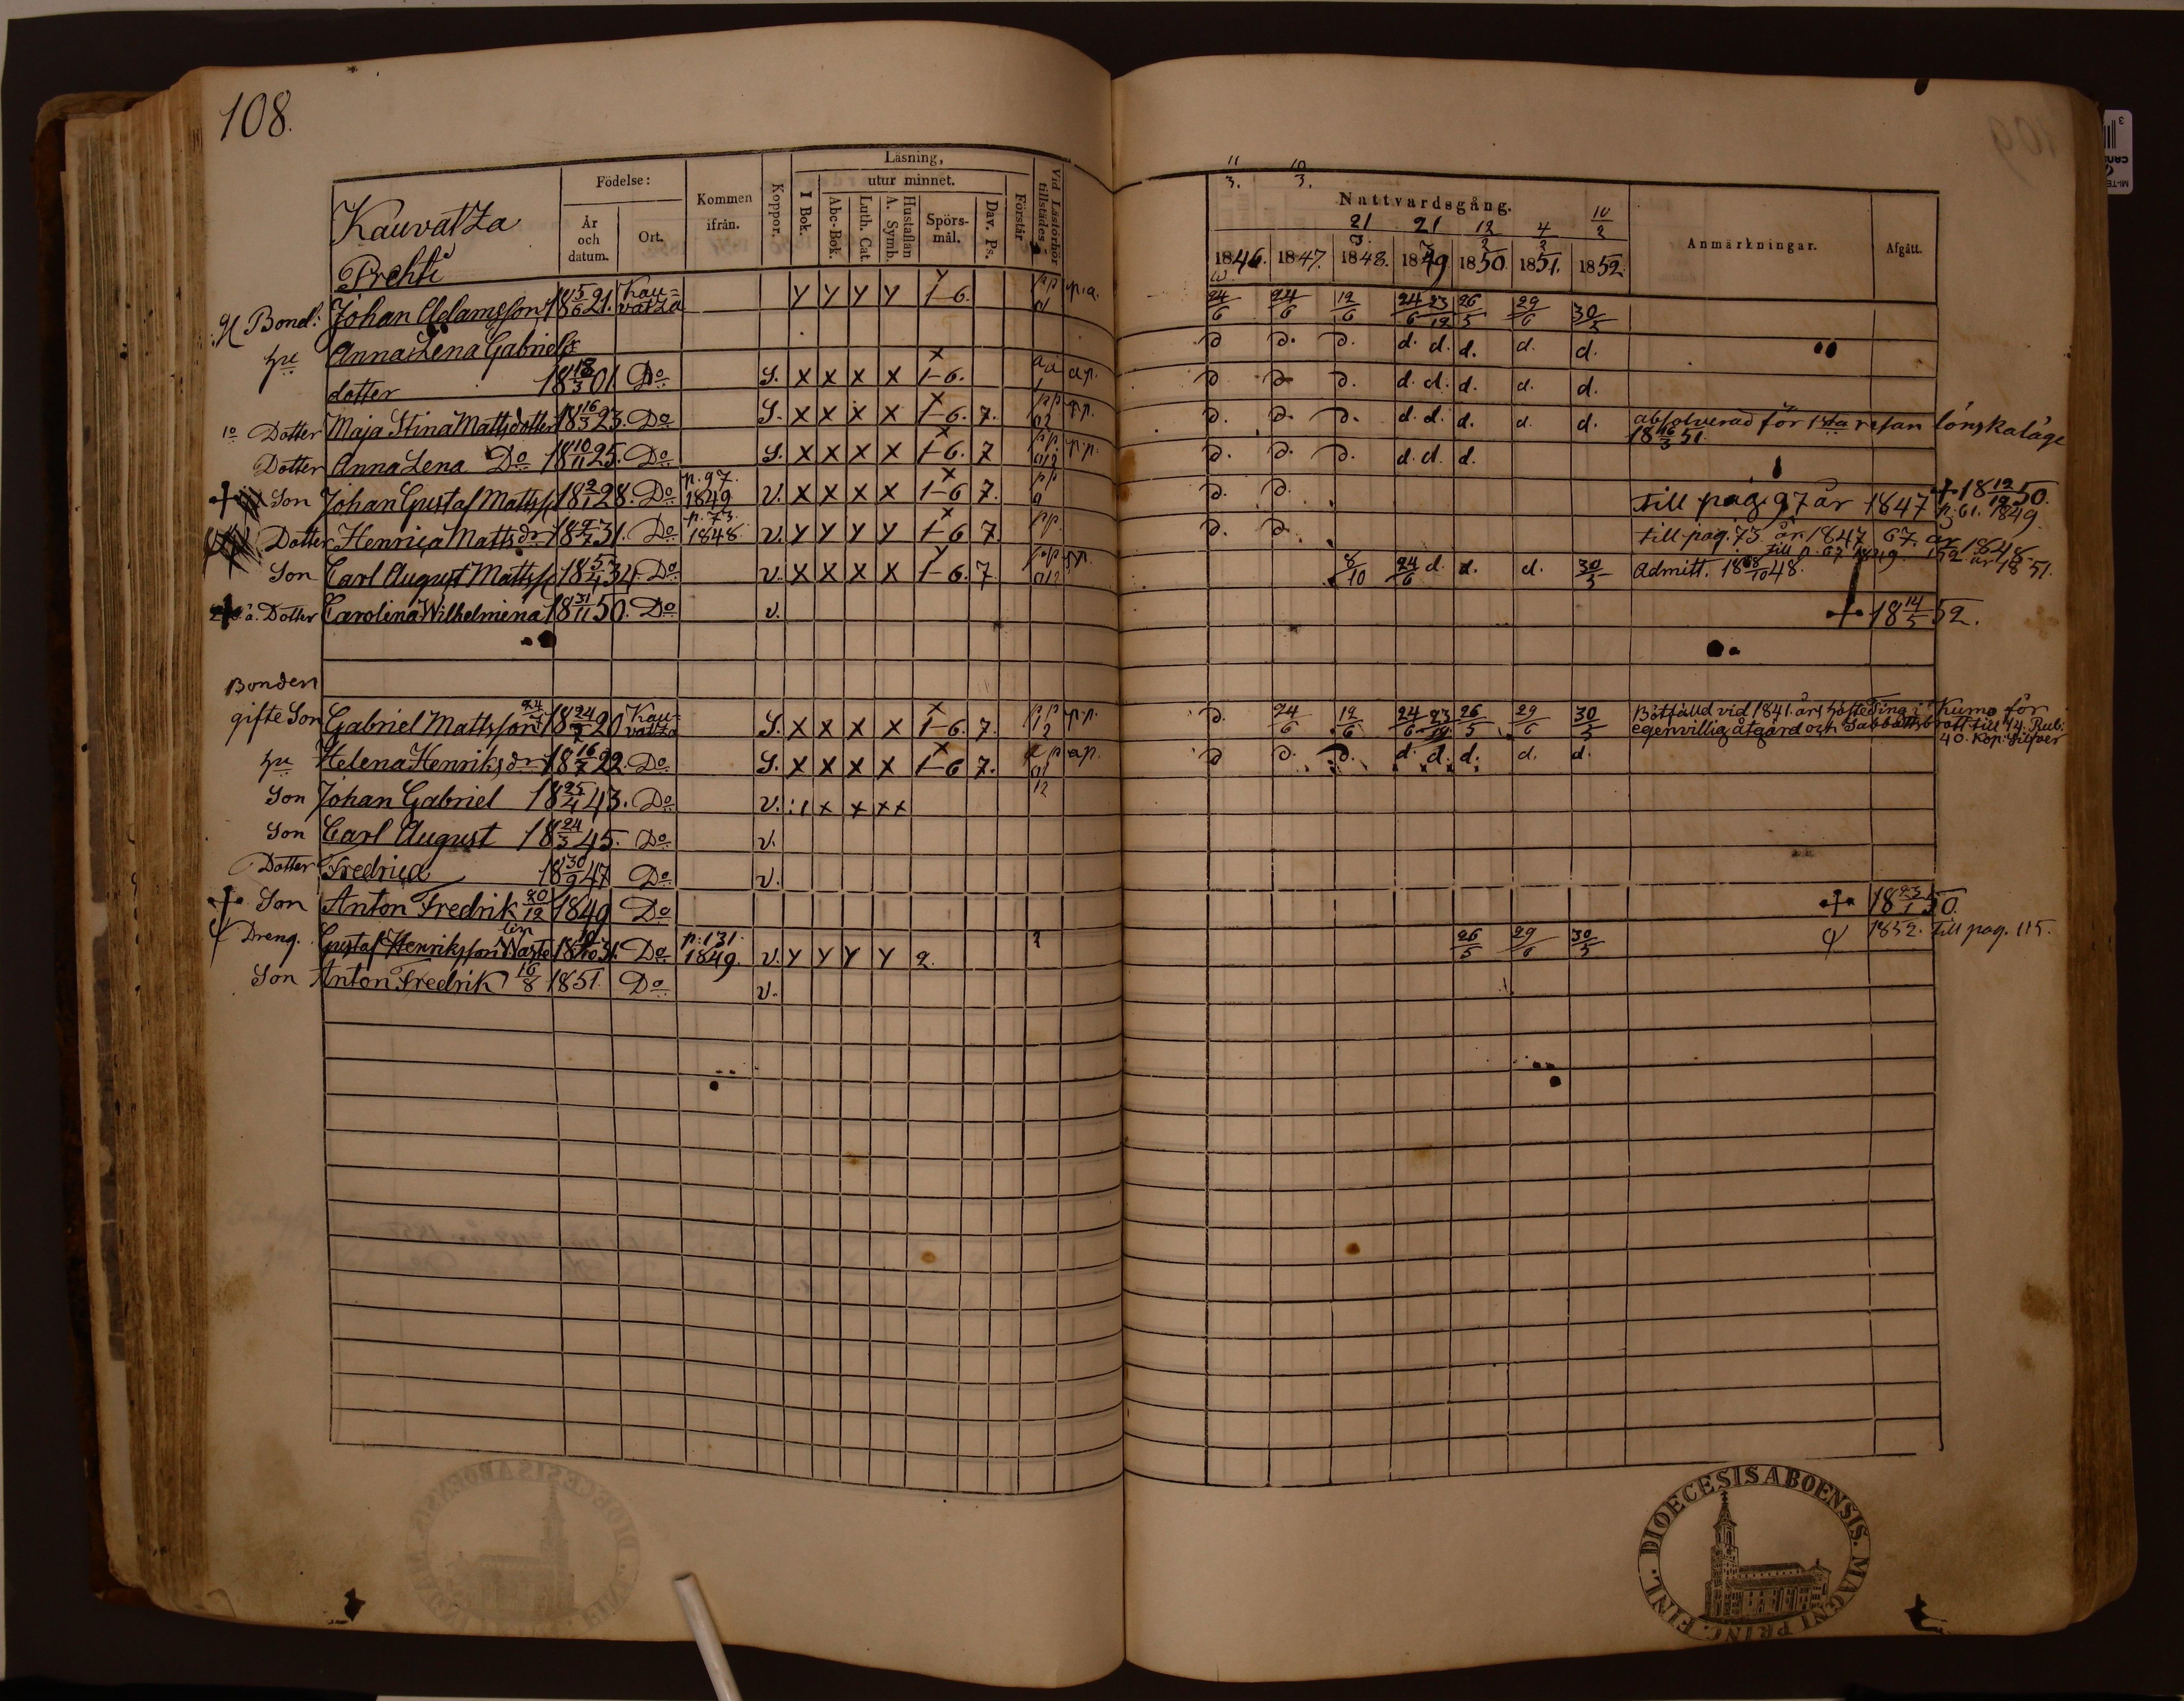 108.
Kauvatza
Prehti
Födelse:
År och datum.
Ort.
Kommen ifrån.
Koppor.
Läsning,
I Bok.
utur minnet.
Abc-Bok.
Luth. Cat
Hustaflan A. Symb.
Spörs-mål.
Dav. Ps.
Förstår
Vid Läsförhör tillstädes
11/3. 10/3.
Nattvardsgång.
21/3 21/3 12/2 4/2 10/2
1846. 1847. 1848. 1849 1850. 1851. 1852.
Anmärkningar.
Afgått.
Bond: Johan Adamsson 18 5/6 21. Kau=vatza Y Y Y Y Y 1-6. pp p.a. 24/6 24/6 12/6 24/6 23/12 26/5 29/6 30/5
hu Anna Lena Gabriels d. d. d. d. d. d. d. d.
dotter 18 18/3 01 Do S. X X X X X 1-6. a.p. d d d. d. d. d. d. d.
1o Dotter Maja Stina Mattsdotter 18 16/3 23. Do S. X X X X X 1-6. 7. pp p.p. d. d. d. d. d. d. d. d. absolverad för 1sta resan lönskaläge
18 16/3 51.
Dotter Anna Lena Do 18 10/11 25. Do S. X X X X X 1-6. 7 pp p.p. d. d. d. d. d. d.
Son Johan Gustaf Mattss 18 2/1 28. Do p. 97. 1849 v. X X X X X 1-6 7. pp d. d. till pag. 97 år 1847 + 18 12/12 50.
p. 61. 1849
Dotter Henrica Matts dr 31. Do p. 73. 1848. v. Y Y Y Y X 1-6 7. pp. d. d. till pag. 73 år 1847 67. år 1848.
till p. 67 1849. 152 år 1851.
Son Carl August Mattss 18 5/4 34. Do v. X X X X Y 1-6. 7 8/10 24/6 d. d. d. 30/5 Admitt. 18 8/10 48.
Dotter Carolina Wilhelmina 18 31/11 50. Do v. + 18 14/5 52.
Bonden
gifte Son Gabriel Mattsson 18 24/5 20 Kau=vatza S. X X X X X 1-6. 7. p.p. d. 24/6 12/6 24/6 23/12 26/5 29/6 30/5 Bötfälld vid 1841. års hösteting i Kumo för
egenvillig åtgärd och Sabbatsbrott till 14. Rub:
40. kop: Silfver
hu Helena Henriks dr 18 16/7 22. Do S. X X X X X 1-6 7. a.p. d d. d. d. d. d. d. d.
Son Johan Gabriel 18 25/4 43. Do v. x x x x
Son Carl August 18 24/3 45. Do v.
Dotter Fredrica 18 30/9 47 Do v.
+ Son Anton Fredrik 20/12 1849 Do + 18 23/1 50.
Dreng. Gustaf Henriksson 18 10/10 31. Do p: 131. 1849. v. Y Y Y Y 2. 26/5 29/6 30/5 1852. till pag. 115.
Son Anton Fredrik 16/8 1851. Do v.
DIOECESIS ABOENSIS. MAGNI PRINC. FINL.